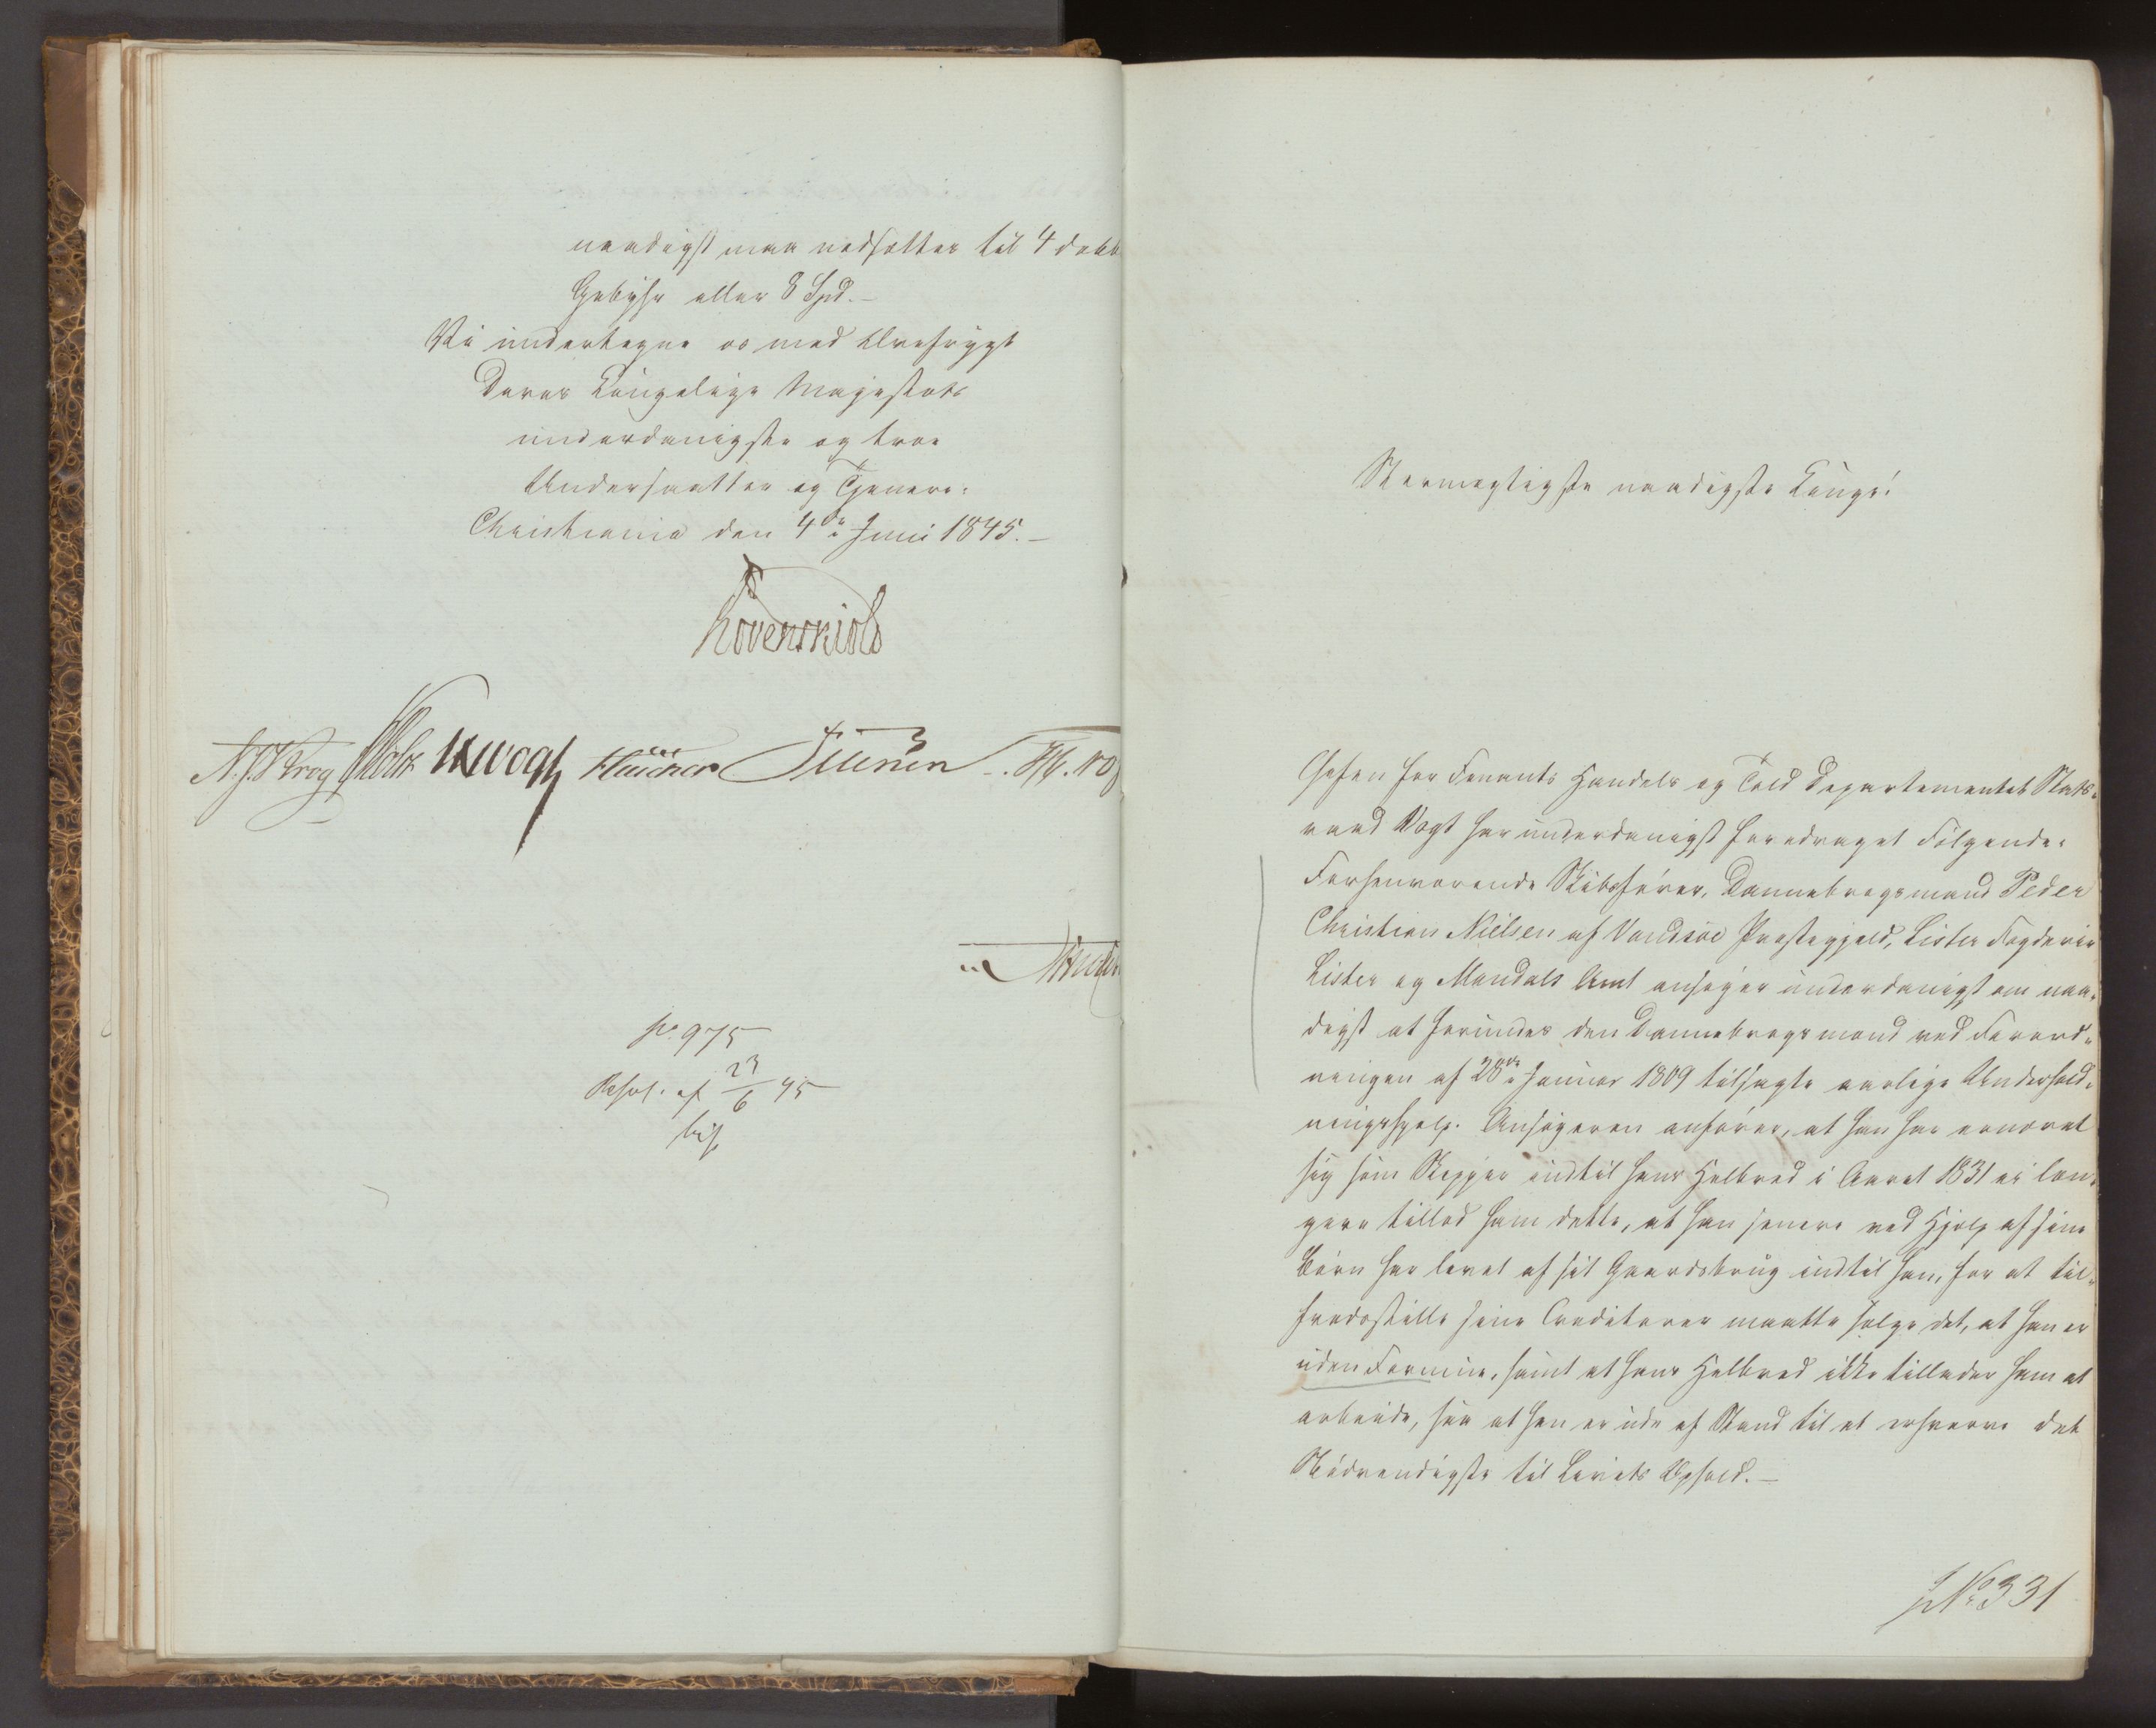 naadigst maa nedsættes til 4 dobb
Gebyhr eller 8 Spd.-
Vi undertegne os med Ærefrygt
Deres Kongelige Majestæts
underdanigste og troe
Undersaatter og Tjenere:
Christiania den 4de Juni 1845.-
Løvenskiold
N. J. Krog Holst Vogt
p. 975
Resol. af 23/6 45
Stormægtigste naadigste Konge!
Chefen for Finants Handels og Told Departementet Stats-
raad Vogt har underdanigst foredraget Følgende:
Forhenværende Skibsfører, Dannebrogsmand Peder
Christian Nielsen af Vandsøe Præstegjeld, Lister Fogderie
Lister og Mandals Amt ansøger underdanigst om naa-
digst at forundes den Dannebrogsmænd ved Forord-
ningen af 28de Januar 1809 tilsagte aarlige Underhold-
ningshjelp. Ansøgeren anfører, at han har ernæret
sig som Skipper indtil hans Helbred i Aaret 1831 ei læn-
gere tillod ham dette, at han senere ved Hjelp af sine
Børn har levet af sit Gaardsbrug indtil han, for at til-
fredsstille sine Creditorer maatte sælge det, at han er
uden Formue, samt at hans Helbred ikke tillader ham at
arbeide, saa at han er ude af Stand til at erhverve det
Nødvendigste til Livets Ophold.-
No 331